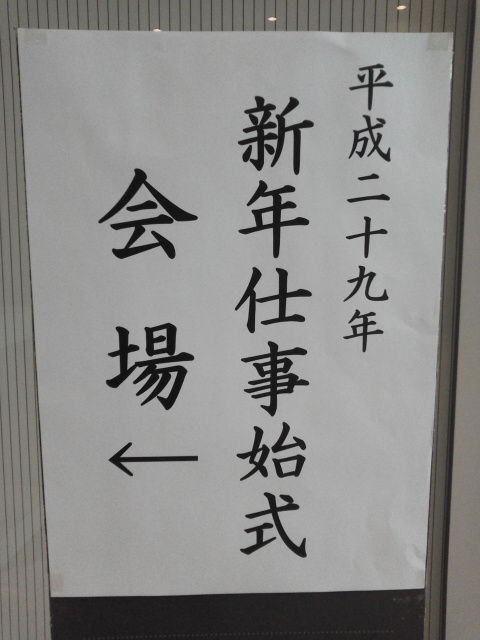 平成二十九年
新年仕事始式
会場
←